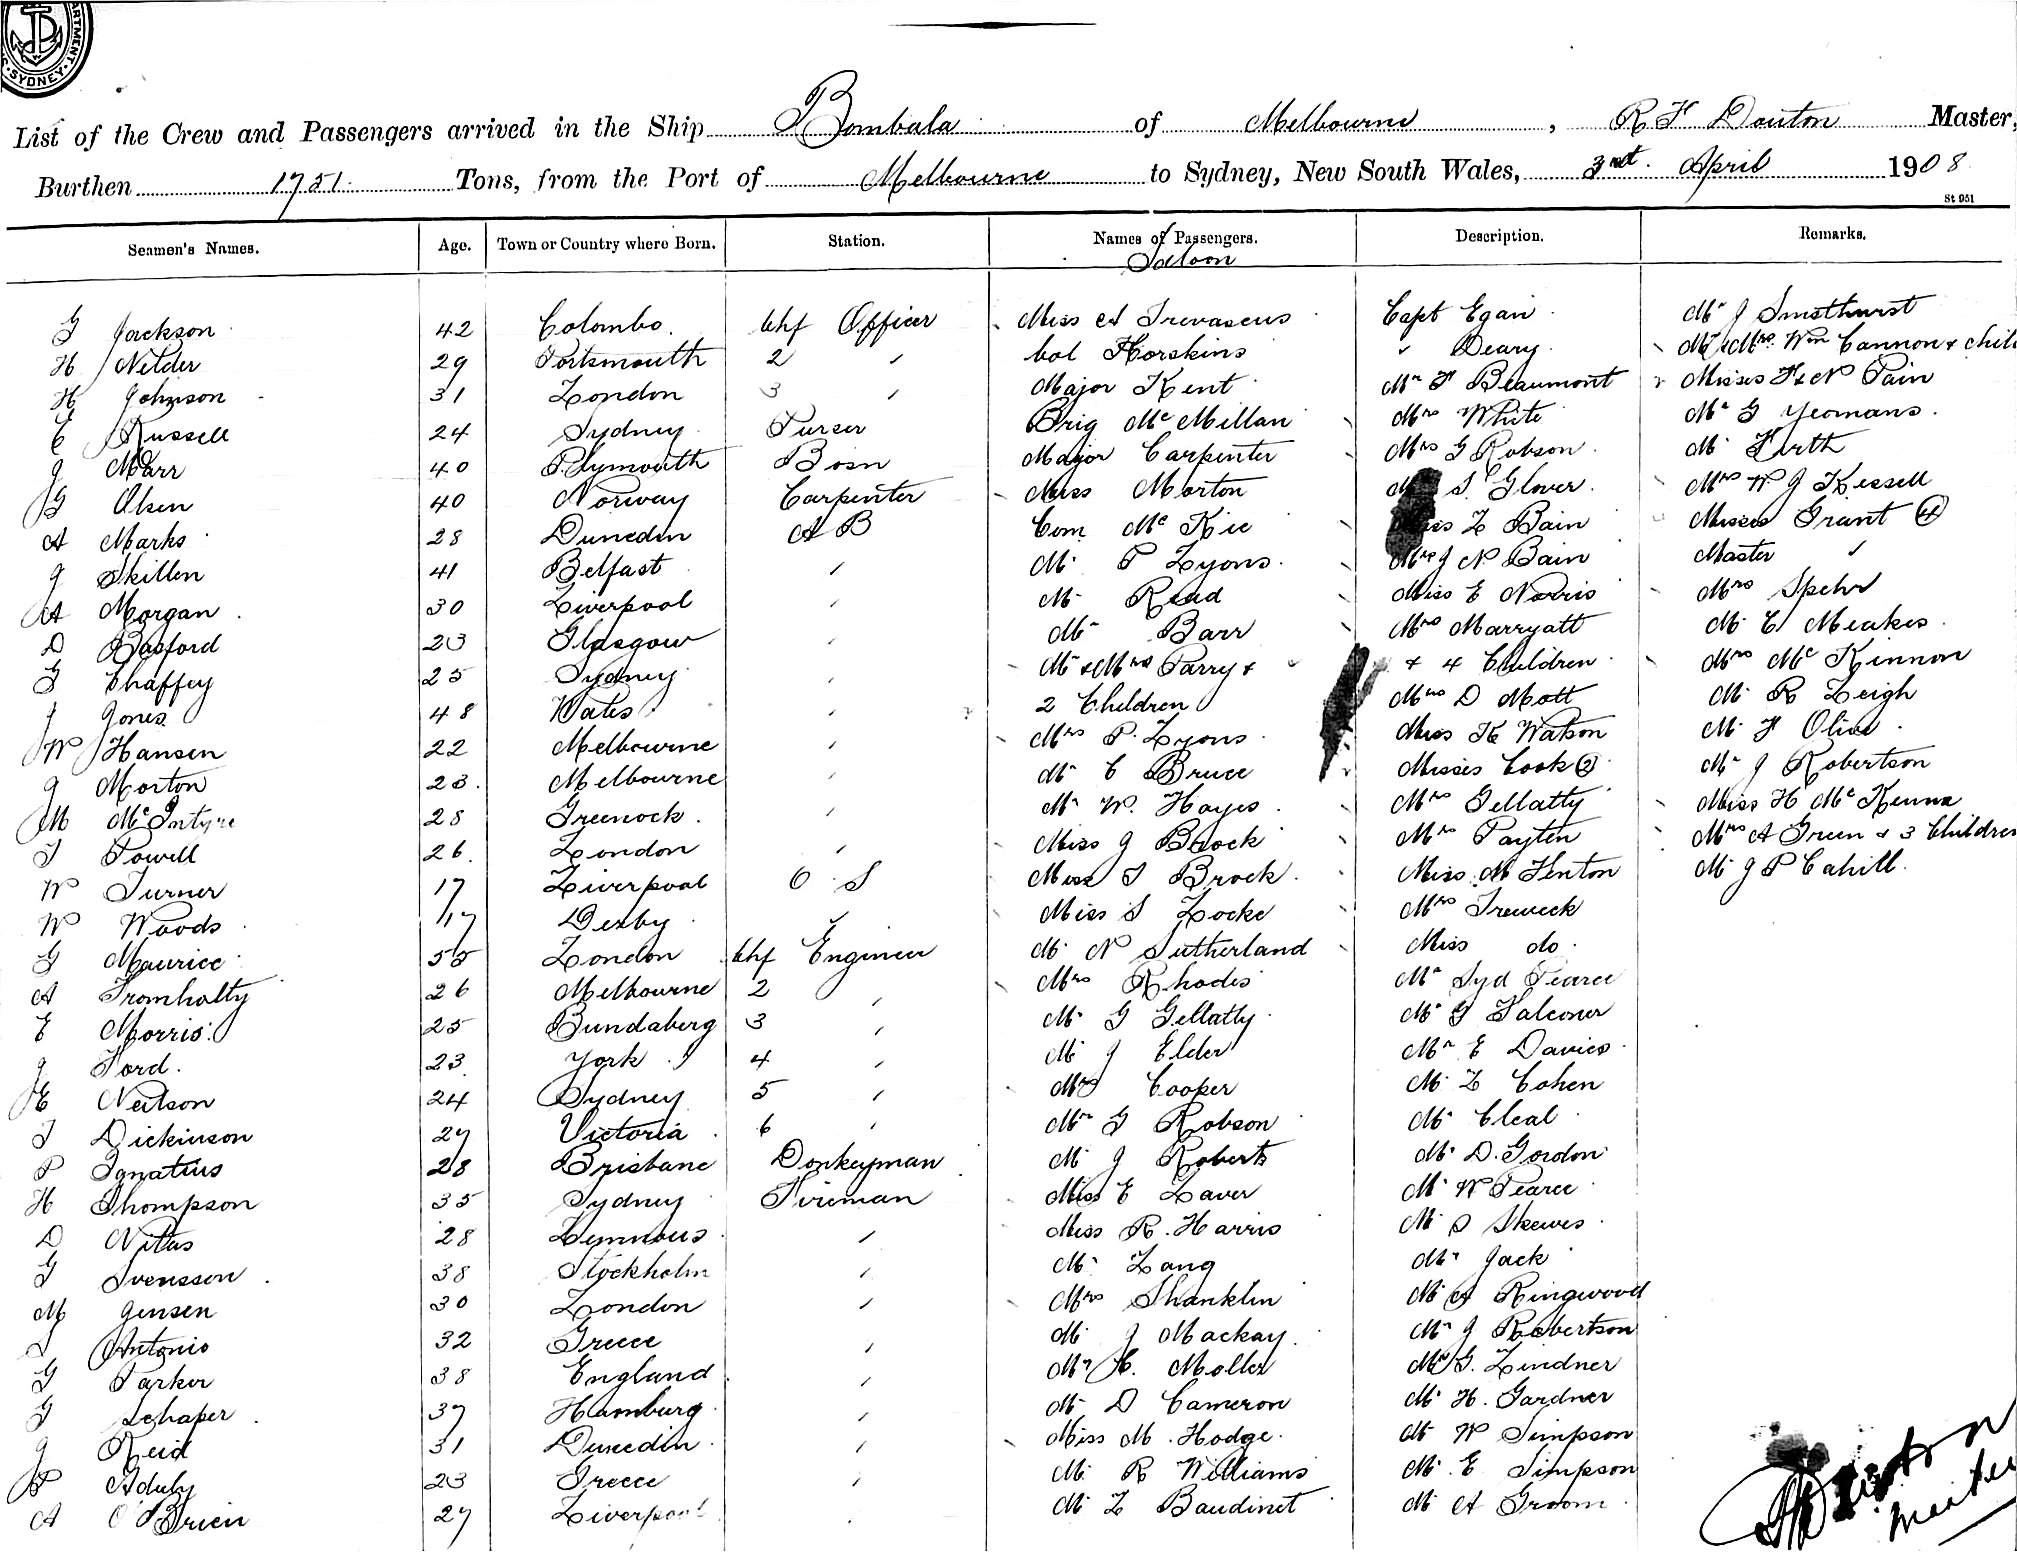 DEPARTMENT. SYDNEY.
List of the Crew and Passengers arrived in the Ship Bombala of Melbourne, R F Douton Master,
Burthen 1751 Tons, from the Port of Melbourne to Sydney, New South Wales, April 1908
St 951
Seamen's Names. Age. Town or Country where Born. Station. Names of Passengers. Description. Remarks.
Saloon
G Jackson 42 Colombo. Chf Officer Miss A Trevascus Capt Egan Mr J Smethurst
H Nilder 29 Portsmouth 2 " Col Horskins " Deary Mr & Mrs Wm Cannon & chil
H Johnson 31 London 3 " Major Kent Mr F Beaumont Misses F & N Pain
C Russell 24 Sydney Purser Brig McMillan Mrs White Mr G Yeomans.
J Marr 40 Plymouth Bosn Major Carpenter Mrs G Robson Mr Firth
G Olsen 40 Norway Carpenter Miss Morton S. Glover Mrs W J Kessell
A Marks 28 Dunedin A B Com McKie Z Bain Misses Grant (4)
J Skillen 41 Belfast " Mr P Lyons. Mrs J N Bain Master "
A Morgan 30 Liverpool " Mr Read Miss E Norris Mrs Spehr
D Basford 23 Glasgow " Mr Barr Mrs Marryatt Mr C Meakes
G Chaffey 25 Sydney " Mr & Mrs Parry & + 4 Children Mrs McKinnon
J Jones 48 Wales " 2 Children Mrs D Mott Mr R Leigh
W Hansen 22 Melbourne " Mrs P. Lyons Miss K Watson Mr F Olive
J Morton 23. Melbourne " Mr C Bruce Misses Cook (2) Mr J Robertson
M McIntyre 28 Greenock. " Mr W. Hayes Mrs Gellatly Miss H McKenna
T Powell 26. London " Miss J Brock Mrs Payten Mrs A Green & 3 Children
W Turner 17 Liverpool O S Miss I Brock Miss M Fenton Mr J P Cahill.
W Woods 17 Derby " Miss S Locke Mrs Treweek
G Maurice 55 London Chf Engineer Mr N Sutherland Miss do.
A Tromholty 26 Melbourne 2 " Mrs Rhodes Mr Syd Pearce
E Morris 25 Bundaberg 3 " Mr G Gellatly Mr G Falconer
J Ford. 23 York 4 " Mr J Elder Mr E Davies
E Neilson 24 Sydney 5 " Mrs Cooper Mr L Cohen
T Dickinson 27 Victoria 6 " Mr G Robson Mr Cleal
P Ignatius 28 Brisbane Donkeyman Mr J Roberts Mr D. Gordon
H Thompson 35 Sydney Fireman Miss E Laver Mr W Pearce
D Nitas 28 Lemnous " Miss R. Harris Mr S Skewes
G Svensson 38 Stockholm " Mr Lang Mr Jack
M Jensen 30 London " Mrs Shanklin Mr A Ringwood
Antonio 32 Greece " Mr J Mackay Mr J Robertson
G Parker 38 England " Mr H. Moller Mr G. Lindner
G Schaper 37 Hamburg " Mr D Cameron Mr H. Gardner
J Reid 31 Dunedin " Miss M. Hodge. Mr W Simpson
P Aduly 23 Greece " Mr R Williams Mr E Simpson
A O'Brien 27 Liverpool Mr L Baudinet Mr A Groom
Master